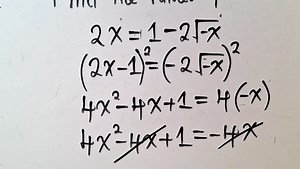 2x = 1 - 2√-x
(2x-1)² = (-2√-x)²
4x² - 4x + 1 = 4(-x)
4x² - 4x + 1 = -4x